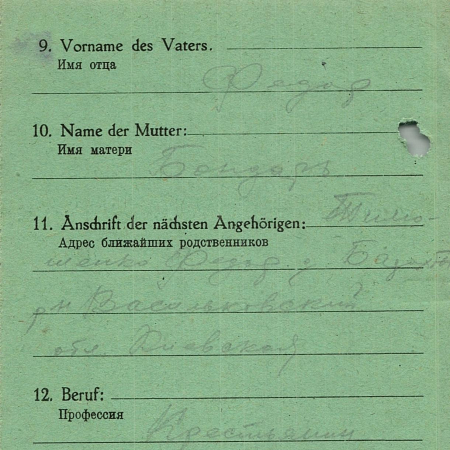 9. Vorname des Vaters.
Имя отца
Федор
10. Name der Mutter:
Имя матери
Бондарь
11. Anschrift der nächsten Angehörigen: Тимо-
Адрес ближайших родственников
шенко Федор д
рн Васильковский
обл. Киевская
12. Beruf:
Профессия
Крестьянин